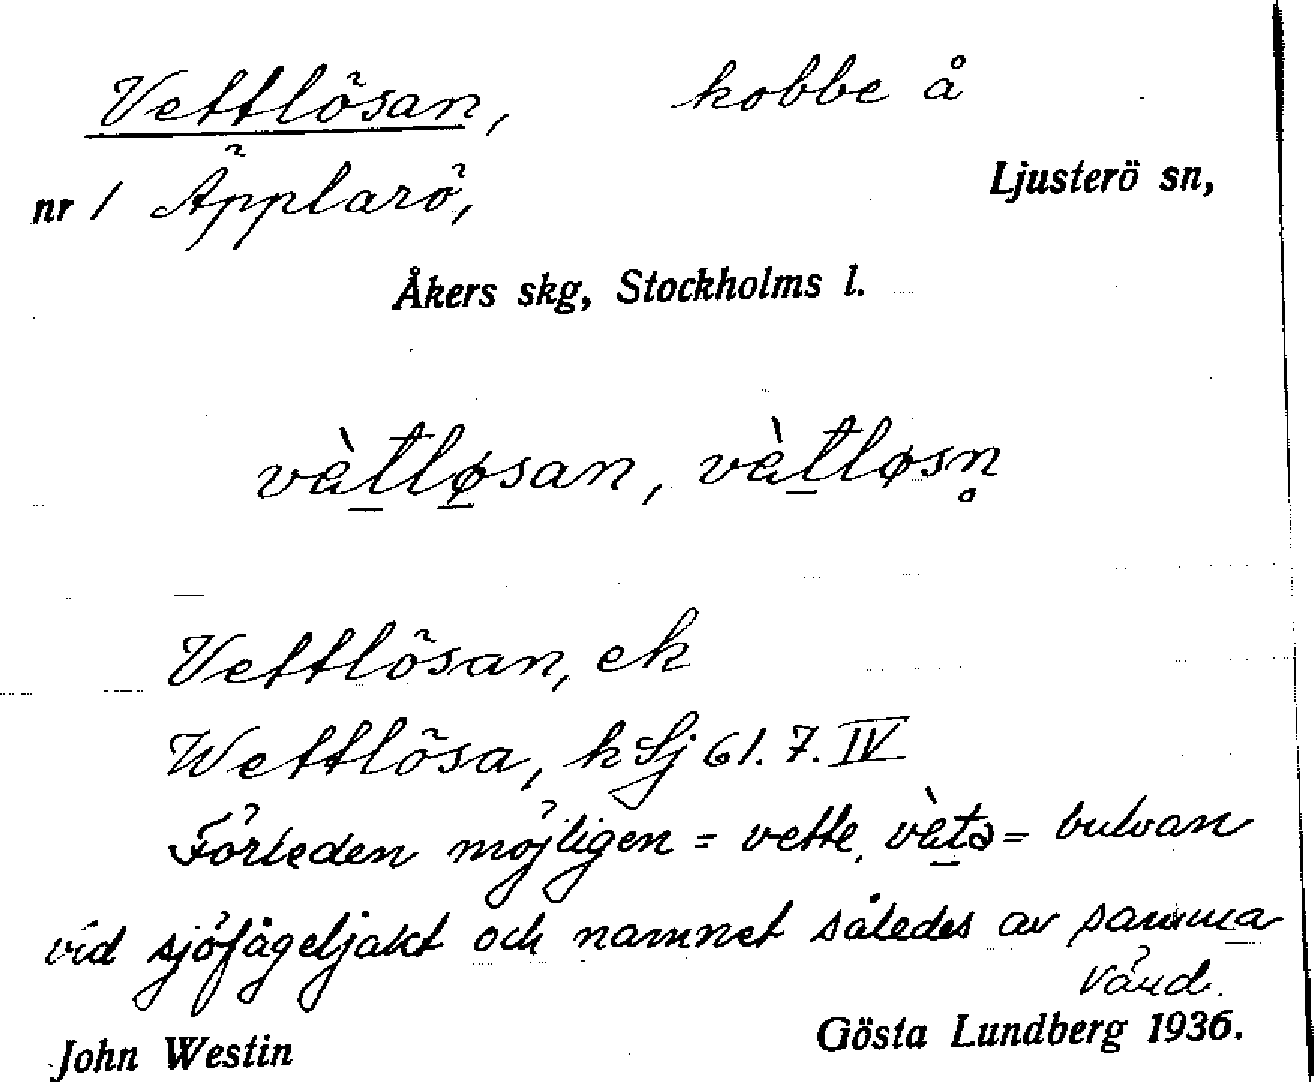 Vettlösan, kobbe å
nr 1 Äpplarö, Ljusterö sn,
Åkers skg, Stockholms l.
vètløsan, vètløsn̥
Vettlösan, ek
Wettlösa, k Lj 61. 7. IV
Förleden möjligen = vette, vètə = bulvan
vid sjöfågeljakt och namnet således av samma
John Westin Gösta Lundberg 1936.